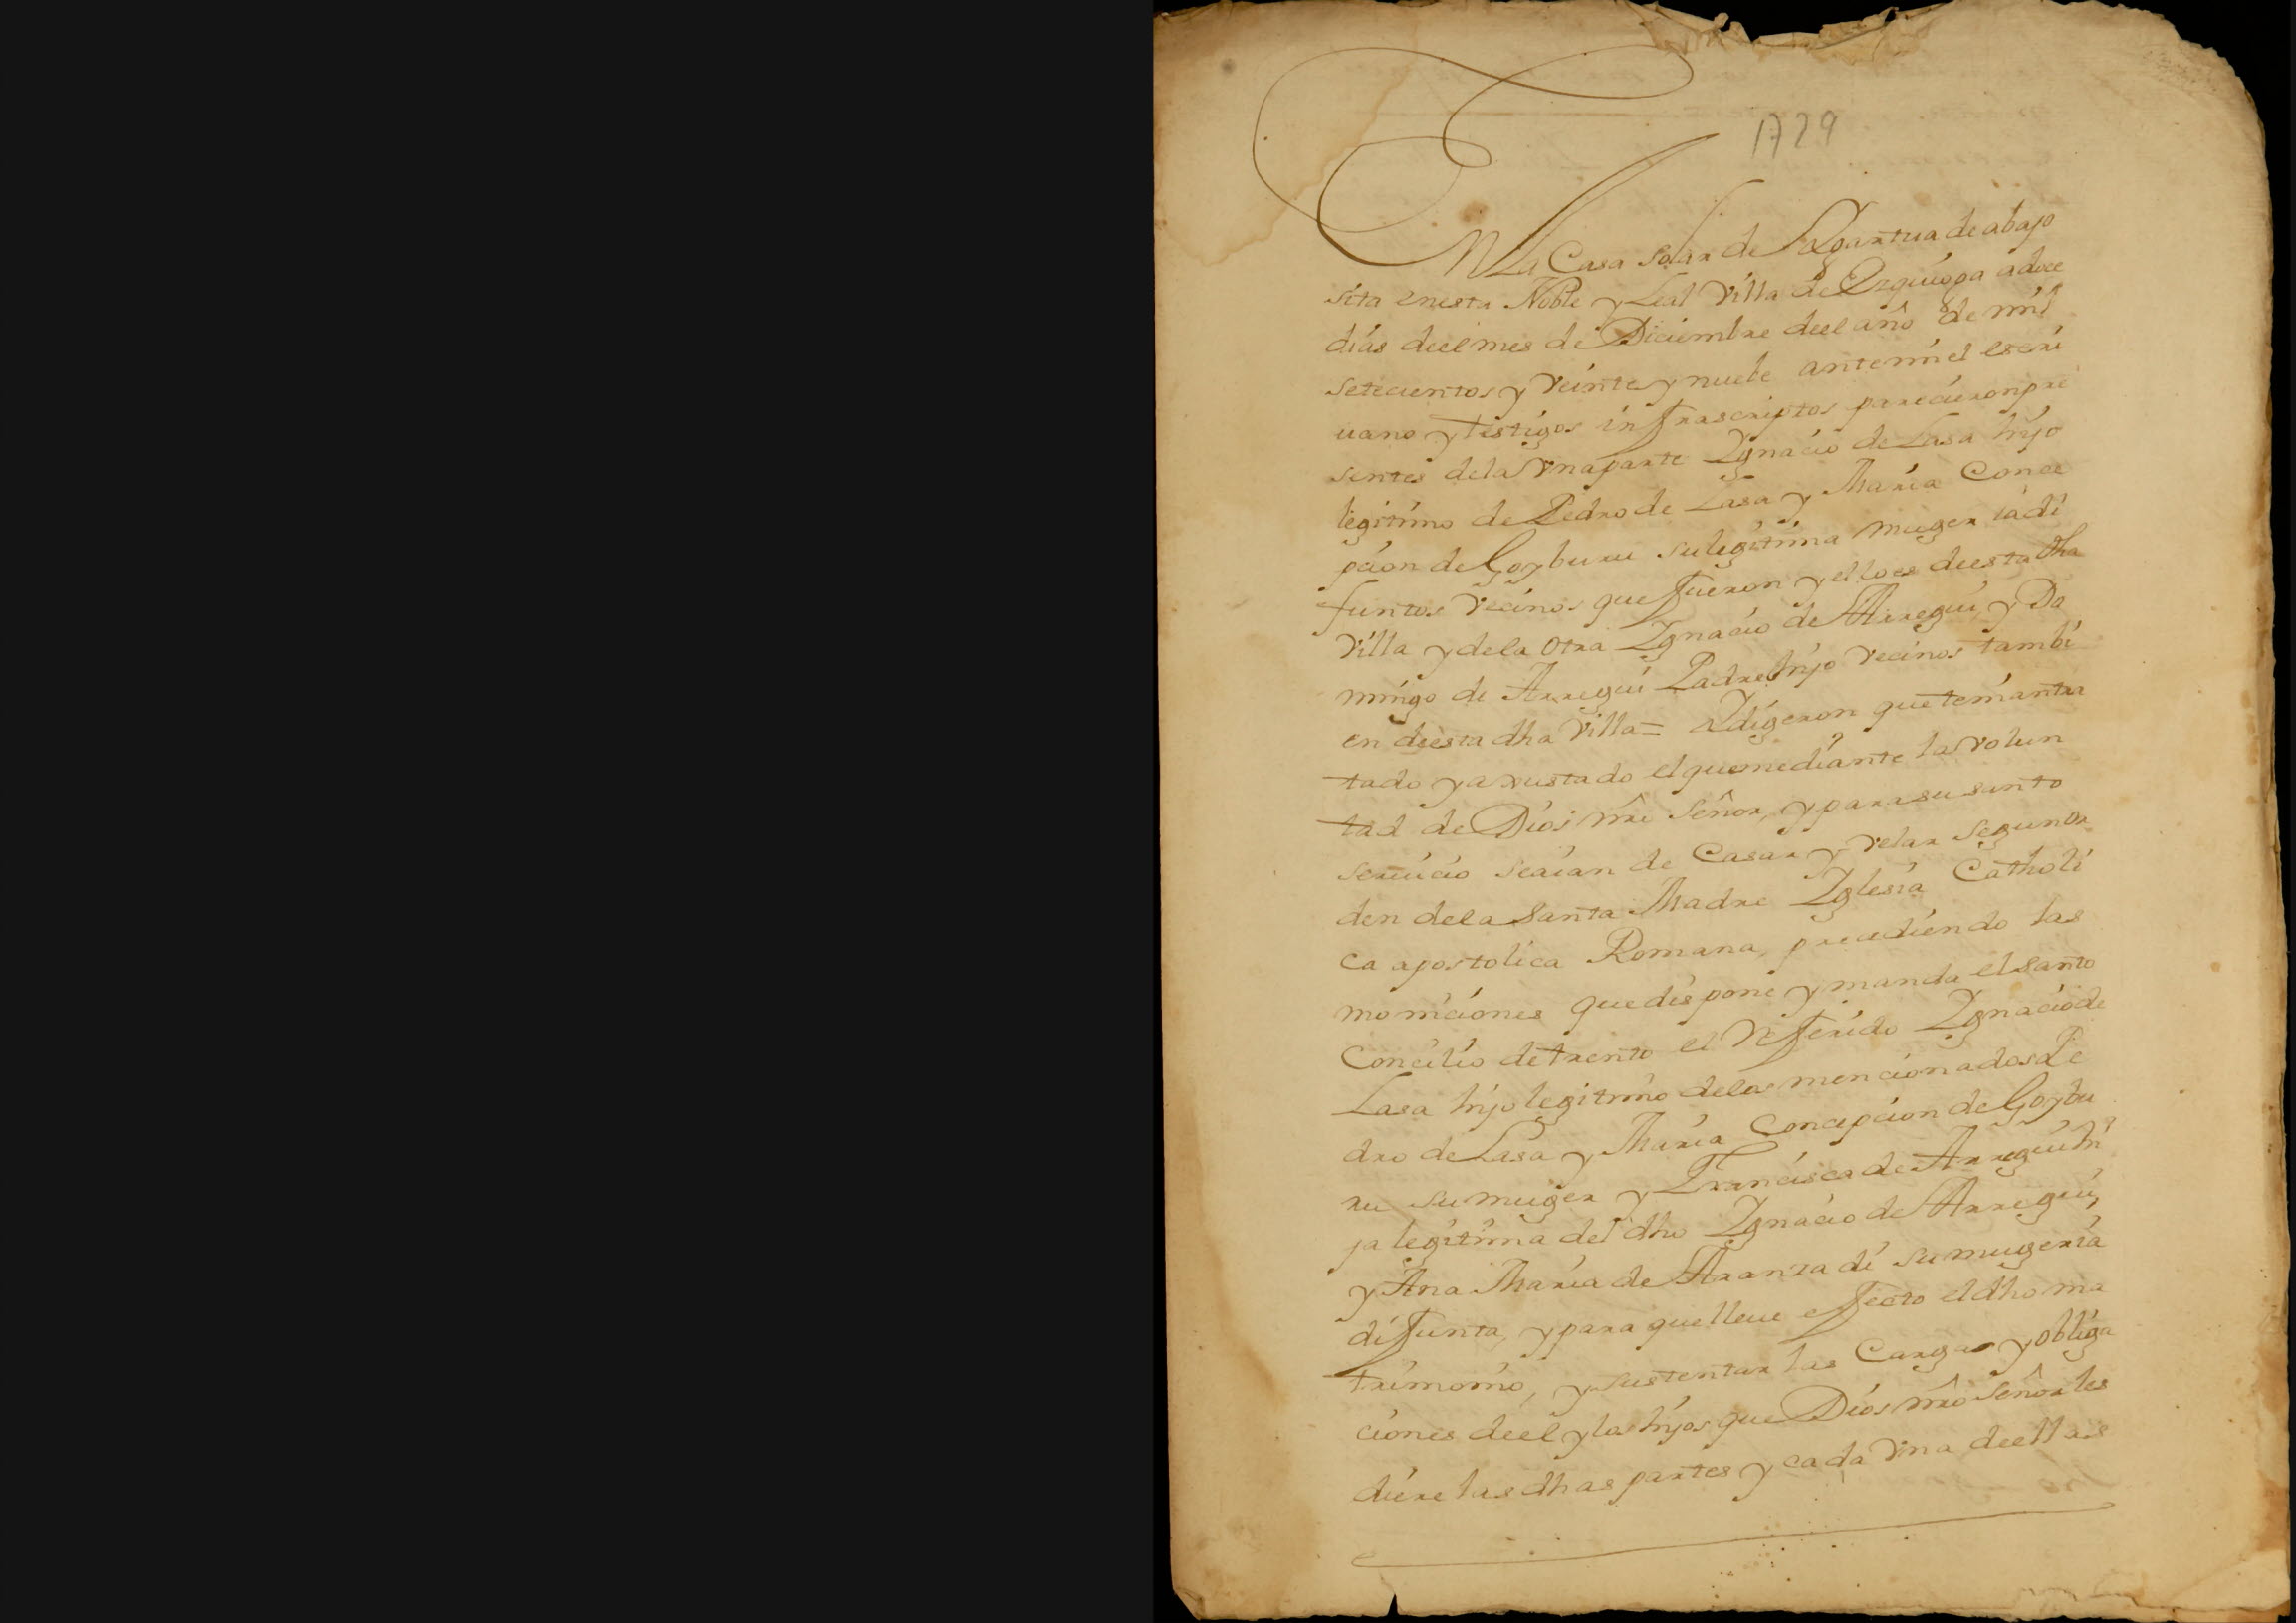 1729
En La Casa Solar de Ygartua de abajo
sita enesta Noble y Leal Villa de Ezquioga adoce
dias deel mes de Diciembre deel año de mil
setecientos y Veinte y nuebe antemi el escri
uano y testigos infrascriptos parecieron pre
sentes dela Vna parte Ygnacio de Lasa hijo
legitimo de Pedro de Lasa y Maria Conce
pcion de Goyburu su legitima muger iadi
funtos Vecinos que fueron y el lo es deesta dha
Villa y dela Otra Ygnacio de Arregui, y Do
mingo de Arregui Padre hijo Vecinos tambi
en deesta dha Villa = Ydigeron que tenian tra
tado y axustado el que mediante la Volun
tad de Dios nro Señor, y para su santo
seruicio seaian de Casar y velar segun or
den dela Santa Madre Yglesia Catholi
ca apostolica Romana, precediendo las
moniciones que dispone y manda el santo
Concilio de trento el Referido Ygnacio de
Lasa hijo legitimo delos mencionados Pe
dro de Lasa y Maria Concepcion de Goybu
ru su muger y Francisca de Arregui hi
ja legitima del dho Ygnacio de Arregui,
y Ana Maria de Aranzadi su muger ia
difunta, y para que lleue effecto el dho ma
trimonio, y sustentar las Cargas y obliga
ciones deel y los hijos que Dios nro Señor les
diere las dhas partes y cada Vna deellas